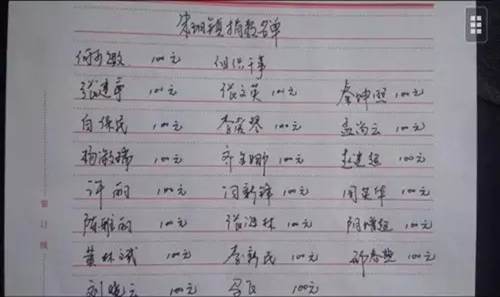 宋坝镇捐款名单
何少敏 100元 组织干事
张建宇 100元 张文英 100元 秦坤照 100元
白保民 100元 李爱琴 100元 孟尚云 100元
杨淑瑞 100元 齐 娜 100元 赵建超 100元
许丽 100元 闫新锋 100元 周 华 100元
陈雅丽 100元 张洪林 100元 闫增超 100元
黄林斌 100元 李新民 100元 祁春 100元
刘晓云 100元 马良 100元
装订线